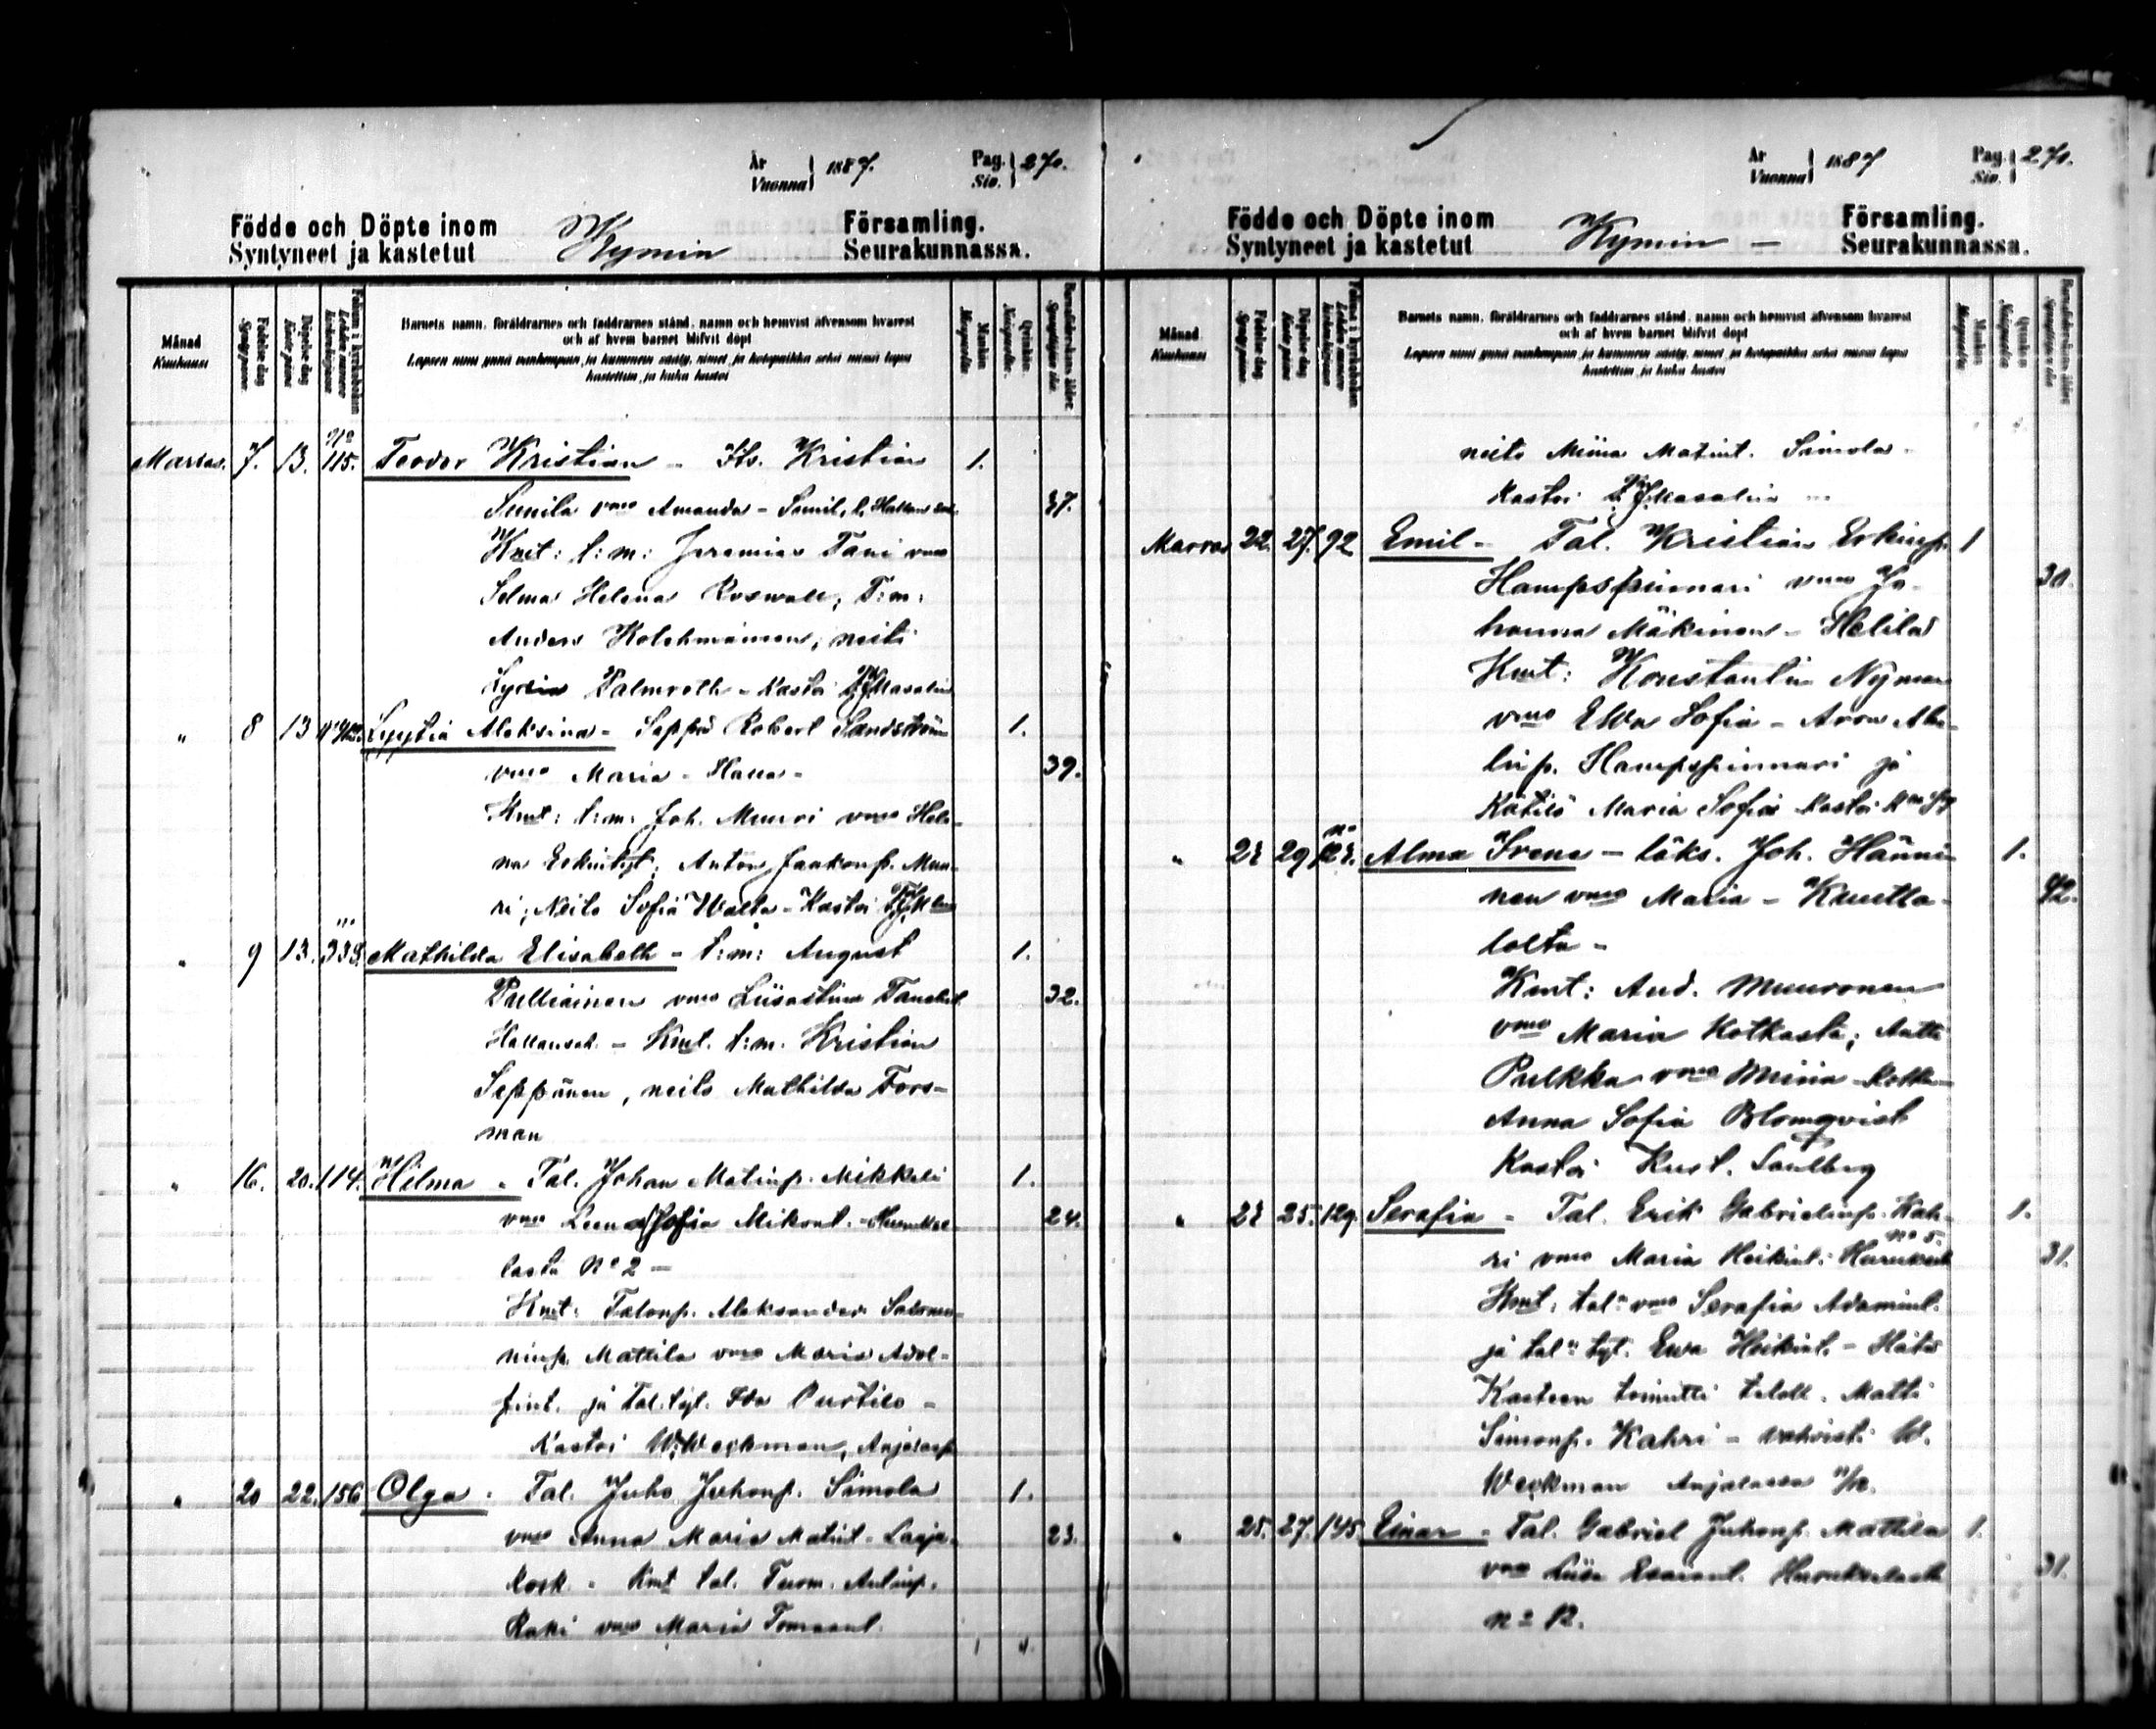 År Vuonna 1887. Pag. Siv. 270.
Födde och Döpte inom Kymin Församling.
Syntyneet ja kastetut Seurakunnassa.
Månad Kuukausi
Födelse dag Syntypäivä
Döpelse dag Kaste päivä
Barnets namn, föräldrarnes och faddrarnes stånd, namn och hemvist äfvensom hvarest
och af hvem barnet blifvit döpt
Lapsen nimi ynnä vanhempain ja kummein sääty, nimet ja kotopaikka sekä missä lapsi
kastettiin ja kuka kastoi
Mankön Miespuolia.
Qvinkön Naispuolia.
Marras. 7. 13. 115. Teodor Kristian - Its. Kristian 1.
Sunila vmo Amanda 37.
Kmt: t:m: Jeremias Tani vmo
Selma Helena Roswall, T:m:
Anders Kolehmainen, neiti
Lydia Palmroth - Kastoi Masalin
" 8 13 Lyytia Aleksina - Seppä Robert Sandström 1.
vmo Maria - Halla - 39.
Kmt: t:m: Joh. Muuri vmo Hele-
na Erkintyt; Anton Jaakonp. Muu-
ri; Neito Sofia Walta - Kastoi
" 9 13. 338. Mathilda Elisabeth - t:m: August 1.
Pulliainen vmo Liisastina 32.
Hallansah. - Kmt. t:m. Kristian
Seppänen, neito Mathilda Fors-
man
" 16. 20. 114. Hilma - Tal. Johan Matinp. Mikkeli 1.
vmo Leena Sofia Mikont. 24.
lasta No 2 -
Kmt: Talonp. Aleksander Salomo-
ninp. Mattila vmo Maria Adol-
fint. ja Tal. tyt. Ida Purtilo -
Kastoi W. Weckman, Anjalasp.
" 20 22. 156 Olga - Tal. Juho Juhonp. Simola 1.
vmo Anna Maria Matint. 23.
kosk. - Kmt tal. Tuom. Antinp.
Raki vmo Maria Tomaant.
1 4.
År Vuonna 1887 Pag. Siv. 270.
Födde och Döpte inom Kymin - Församling.
Syntyneet ja kastetut Seurakunnassa.
Månad Kuukausi
Födelse dag Syntypäivä
Döpelse dag Kaste päivä
Barnets namn, föräldrarnes och faddrarnes stånd, namn och hemvist äfvensom hvarest
och af hvem barnet blifvit döpt
Lapsen nimi ynnä vanhempain ja kummein sääty, nimet ja kotopaikka sekä missä lapsi
kastettiin ja kuka kastoi
Mankön Miespuolia.
Qvinkön Naispuolia.
neito Miina Matint. Simola -
Kastoi Masalin
Marras 22. 27. 92 Emil - Tal. Kristian Erkinp. 1
Hampspinnari vmo Jo- 30.
hanna Mäkinen - Helilä
Kmt: Konstantin Nyman
vmo Ewa Sofia - Aron Abe-
linp. Hampspinnari ja
Kätilö Maria Sofia Kastoi
" 29 Alma Irene - läks. Joh. Hänni- 1.
nen vmo Maria - 42.
lolta -
Kmt: And. Muuronen
vmo Maria Kotkasta; Antti
Pulkka vmo Miina Kotka -
Anna Sofia Blomqvist
Kastoi Kust. Saulberg
" 25. 129. Serafia - Tal. Erik Gabrielinp. Kah- 1.
No 5.
ri vmo Maria Heikint. 31.
Kmt: tal: vmo Serafia Adamint.
ja tal: tyt. Ewa Heikint. -
Kasteen toimitti taloll. Matti
Simonp. Kahri - vahvisti W.
Weckman Anjalassa
" 25. 27. 145 Einar - Tal. Gabriel Juhonp. Mattila 1.
vmo Liisa Esaiant. 31.
No 12.